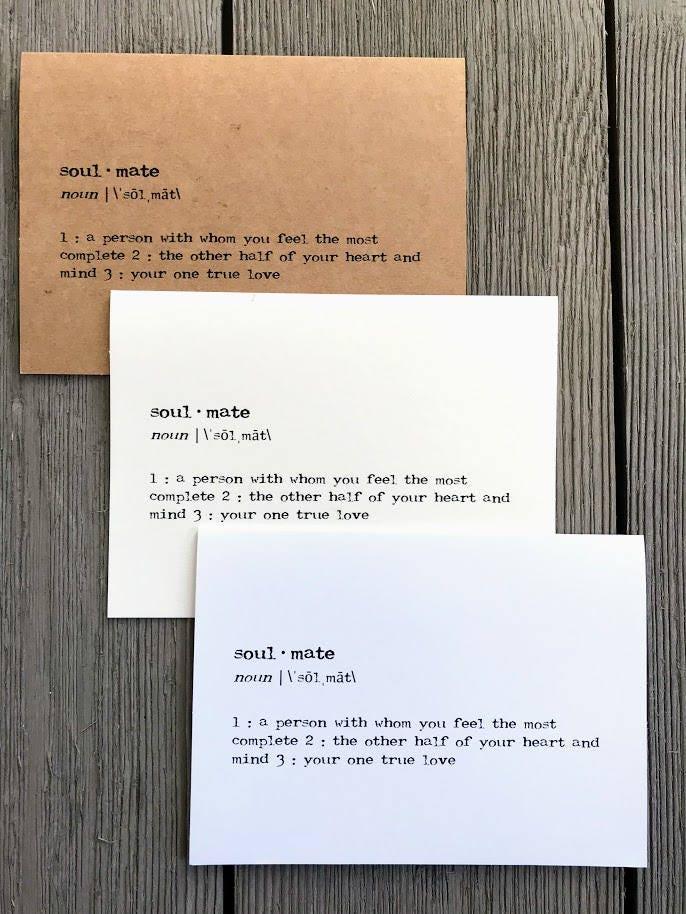 soul·mate
noun | \ˈsōl ˌmāt\
1 : a person with whom you feel the most
complete 2 : the other half of your heart and
mind 3 : your one true love
soul·mate
noun | \ˈsōl ˌmāt\
1 : a person with whom you feel the most
complete 2 : the other half of your heart and
mind 3 : your one true love
soul·mate
noun | \ˈsōl ˌmāt\
1 : a person with whom you feel the most
complete 2 : the other half of your heart and
mind 3 : your one true love